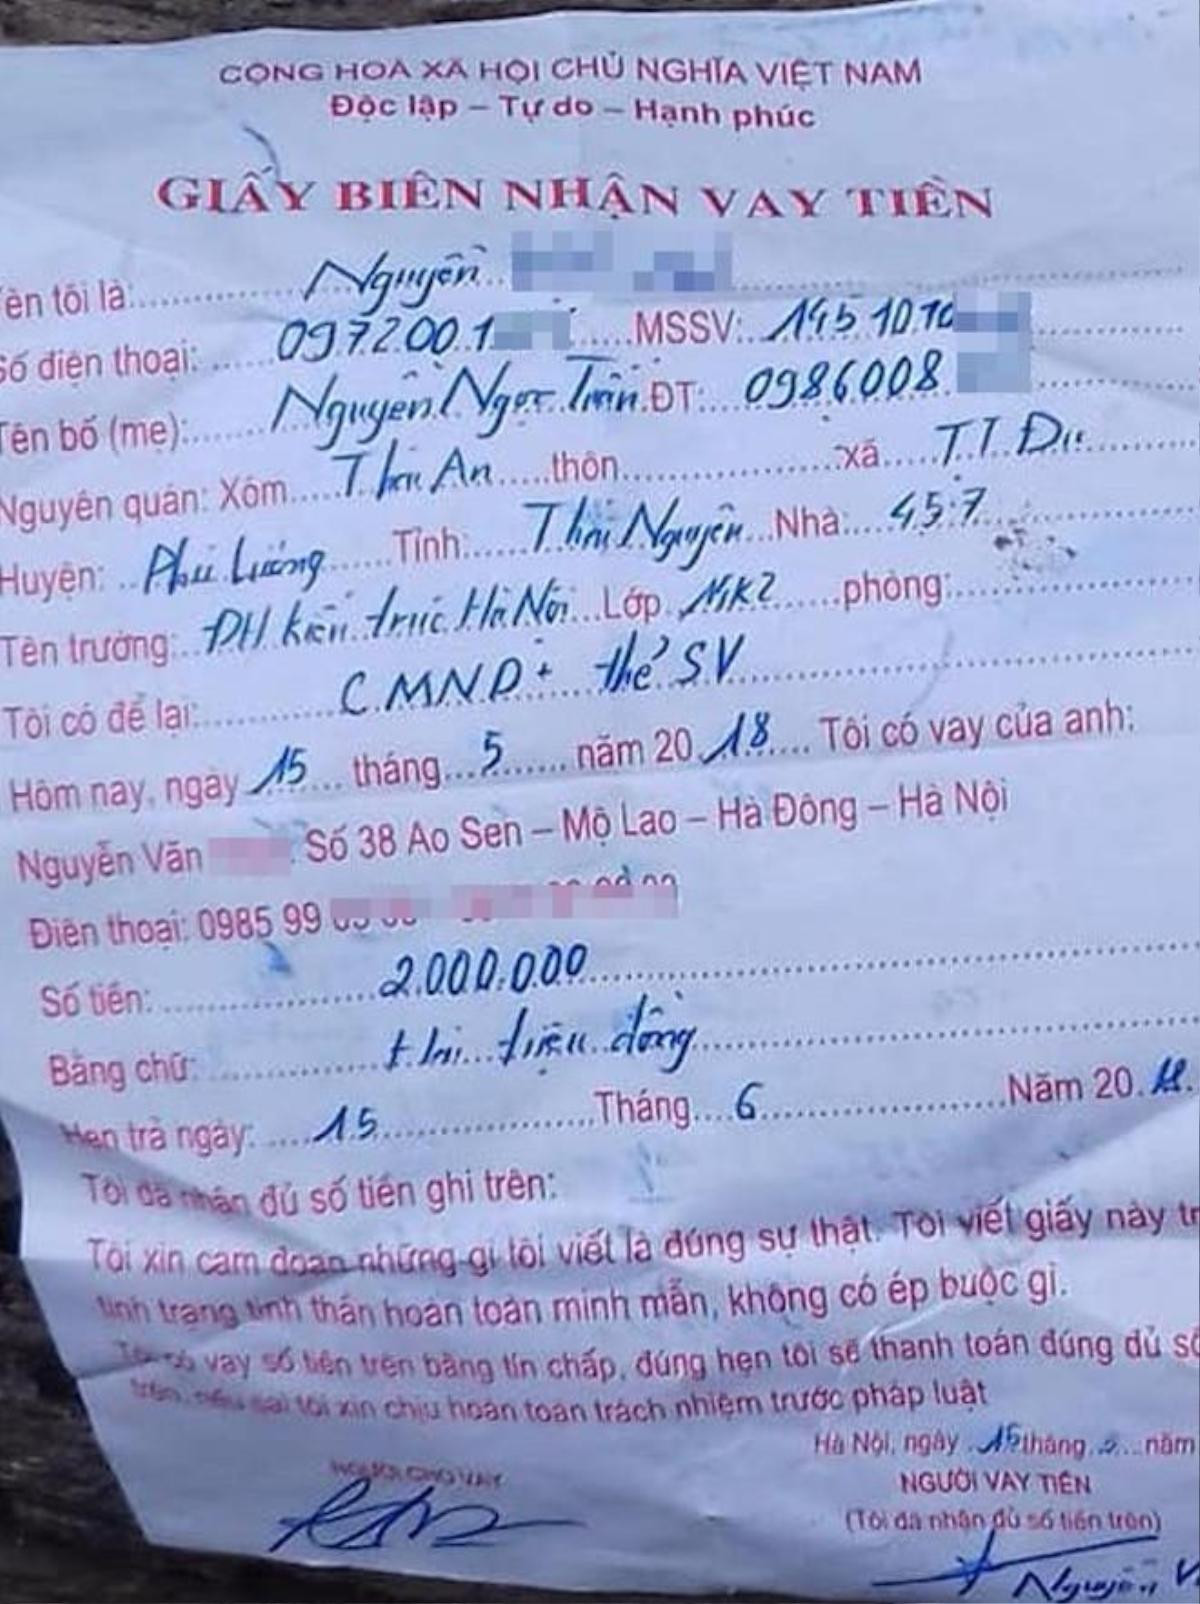 CỘNG HOA XÃ HỘI CHỦ NGHĨA VIỆT NAM
Độc lập – Tự do – Hạnh phúc
GIẤY BIÊN NHẬN VAY TIỀN
ên tôi là: Nguyễn
Số điện thoại: 097200.1 MSSV: 1451010
Tên bố (mẹ): Nguyễn Ngọc Trân ĐT: 0986008
Nguyên quán: Xóm Thái An thôn xã T.T. Đu
Huyện: Phú Lương Tỉnh: Thái Nguyên Nhà: 457
Tên trường: ĐH kiến trúc Hà Nội Lớp phòng:
Tôi có để lại: CMND + thẻ SV
Hôm nay, ngày 15 tháng 5 năm 20 18 Tôi có vay của anh:
Nguyễn Văn Số 38 Ao Sen – Mộ Lao – Hà Đông – Hà Nội
Điện thoại: 0985 99
Số tiền: 2.000.000
Bằng chữ: Hai triệu đồng
Hẹn trả ngày: 15 Tháng 6 Năm 20 18.
Tôi đã nhận đủ số tiền ghi trên:
Tôi xin cam đoan những gì tôi viết là đúng sự thật. Tôi viết giấy này tr
tình trạng tinh thần hoàn toàn minh mẫn, không có ép buộc gì.
Tôi có vay số tiền trên bằng tín chấp, đúng hẹn tôi sẽ thanh toán đúng đủ số
trên, nếu sai tôi xin chịu hoàn toàn trách nhiệm trước pháp luật
Hà Nội, ngày 15 tháng 5 năm
NGƯỜI CHO VAY NGƯỜI VAY TIỀN
(Tôi đã nhận đủ số tiền trên)
Nguyễn V